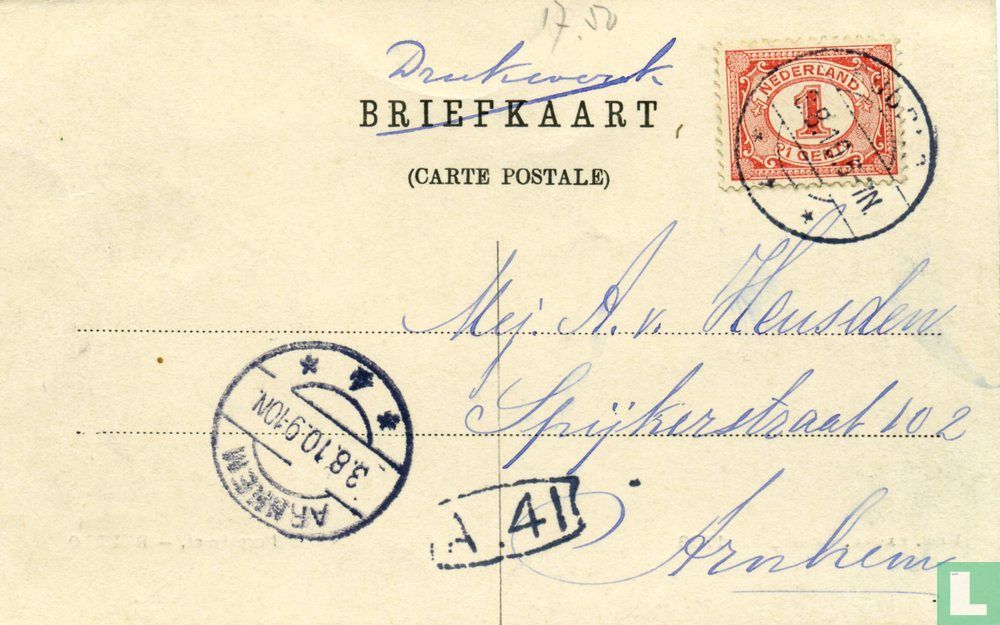 17.50
Drukwerk
BRIEFKAART
(CARTE POSTALE)
NEDERLAND
1
1 CENT
Mej. A. v. Heusden
Spijkerstraat 102
Arnhem
ARNHEM
3.8.10.9-10N.
4
A.41
L